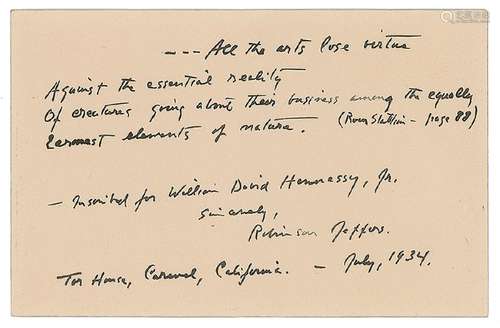 --- All the arts lose virtue
Against the essential reality
Of creatures going about their business among the equally
Earnest elements of nature. (Roan Stallion - page 88)
- Inscribed for William David Hennessy, Jr.
Sincerely,
Robinson Jeffers.
Tor House, Carmel, California. - July, 1934.